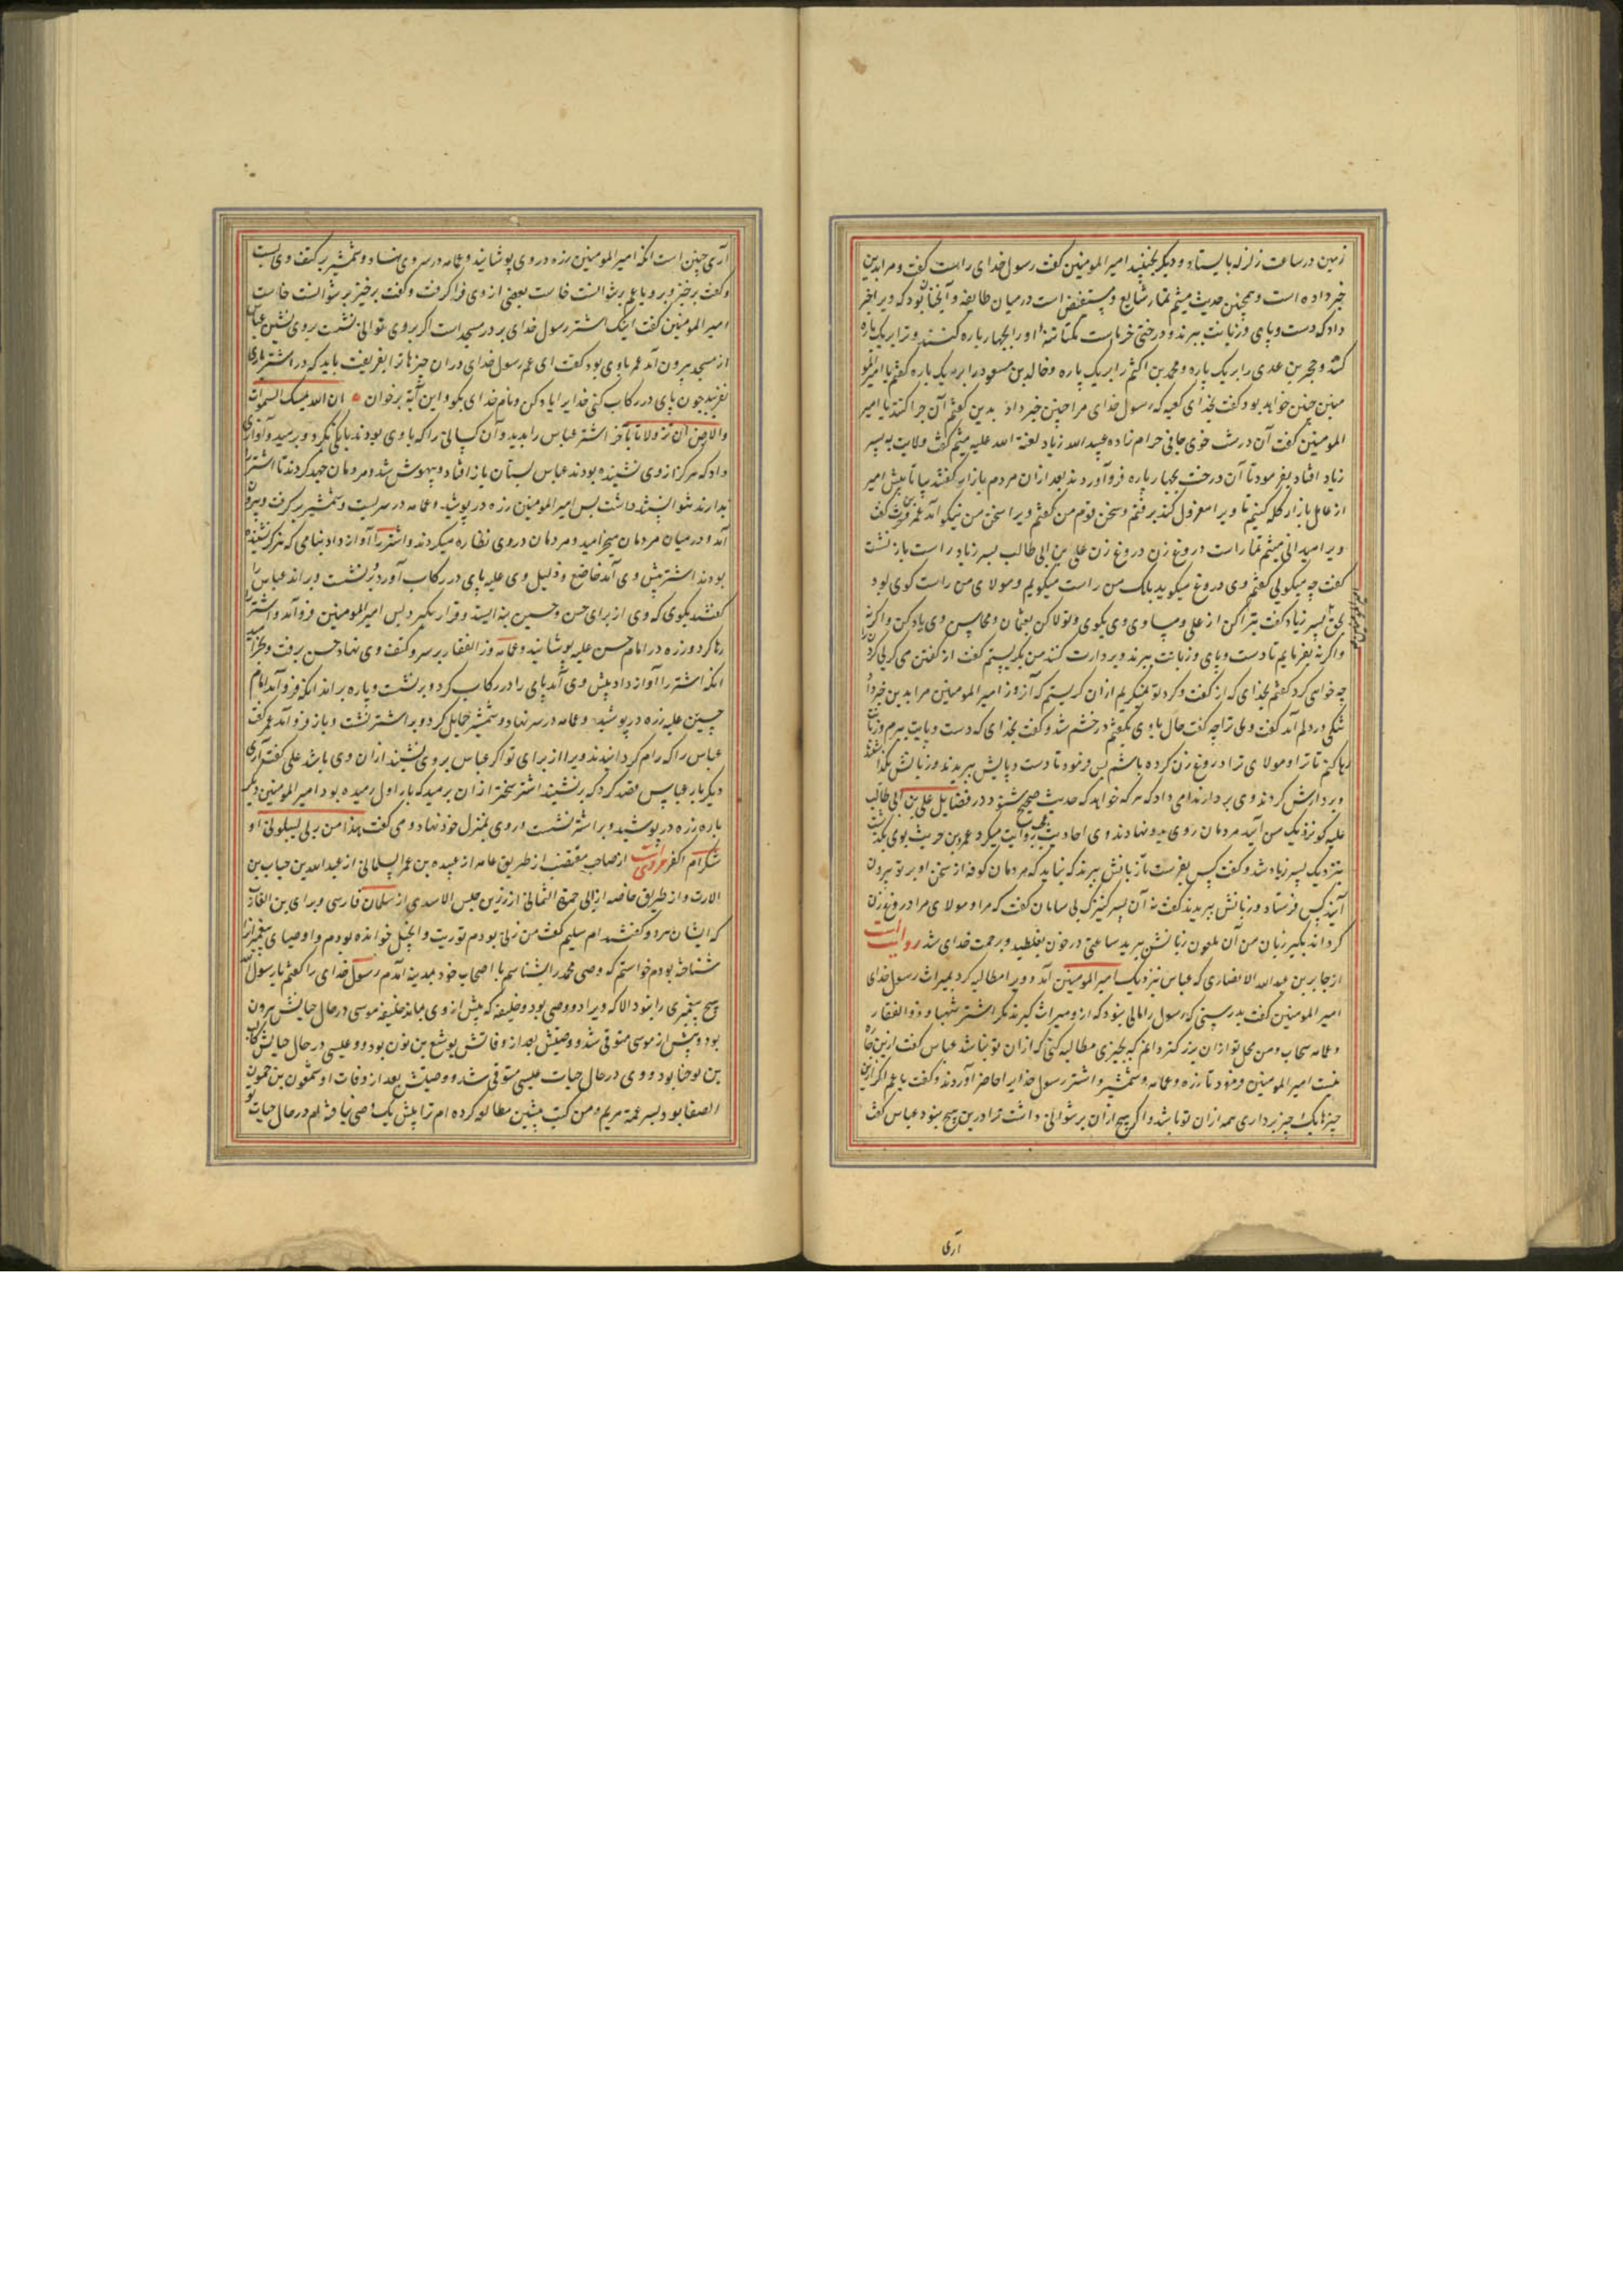 زمین در ساعت زلزله بایستاد و دیگر نجنبید امیرالمومنین گفت رسول خدای راست گفت و مرا بدین
خبر داده است و همچنین حدیث میثم تمار شایع و مستفیض است در میان طایفه و آنچنان بود که ویرا خبر
داد که دست و پای و زبانت ببرند و درختی خرماست بکناسه اورا بچهار پاره کنند و ترا بر یک پاره
کشند و حجر بن عدی را بر یک پاره و محمد بن اکثم را بر یک پاره و خالد بن مسعود را بر یک پاره گفتم یا امیرالمو
منین چنین خواهد بود گفت بخدای کعبه که رسول خدای مرا چنین خبر داد بدین گفتم آن چرا کنند یا امیر
المومنین گفت آن درشت خوی جافی حرام زاده عبیدالله زیاد لعنة الله علیه میثم گفت ولایت به پسر
زیاد افتاد بفرمود تا آن درخت بچهار پاره فرو آوردند بعد ازان مردم بازار گفتند بیا تا پیش امیر
از عامل بازار گله کنیم تا ویرا معزول کند برفتم و سخن قوم من گفتم ویرا سخن من نیکو آمد عمرو حریث گفت
ویرا میدانی میثم تمار است دروغ زن دروغ زن علی بن ابی طالب پسر زیاد راست باز نشست
گفت چه میگویی گفتم وی دروغ میگوید بلک من راست میگویم و مولای من راست گوی بود
بحق پسر زیاد گفت تبرا کن از علی و مساوی وی بگوی و تولا کن بعثمان و محاسن وی یاد کن و اگر نه
واگرنه بفرمایم تا دست و پای و زبانت ببرند و بر دارت کنند من بگریستم گفت از گفتن می گریی گرد
چه خواهی کرد گفتم بخدای که از گفت و کرد تو نمیگریم ازان گریستم که آنروز امیرالمومنین مرا بدین خبر داد
شکی در دلم آمد گفت وی ترا چه گفت حال با وی بگفتم در خشم شد و گفت بخدای که دست و پایت ببرم و زبانت
رها کنم تا ترا و مولای ترا دروغ زن کرده باشم پس فرمود تا دست و پایش ببریدند و زبانش بگذاشتند
و بر دارش کردند وی بر دار ندا می داد که هر که خواهد که حدیث صحیح شنود در فضایل علی بن ابی طالب
علیه گو نزدیک من آیید مردمان روی بدو نهادند وی احادیث عجیب روایت میکرد عمرو بن حریث بوی بگذشت
بنزدیک پسر زیاد شد و گفت کس بفرست تا زبانش ببرند که نباید که مردمان کوفه از سخن او بر تو بیرون
آیند کس فرستاد و زبانش ببریدند گفت نه آن پسر کنیزک بی سامان گفت که مرا و مولای مرا دروغ زن
گرداند بگیر زبان من آن ملعون زبانش ببرید ساعتی در خون بغلطید و برحمت خدای شد روایت
از جابر بن عبدالله الانصاری که عباس نزدیک امیرالمومنین آمد و ویرا مطالبه کرد بمیراث رسول خدای
امیرالمومنین گفت بدرستی که رسول را مالی نبود که ازو میراث گیرند مگر اشتر شهبا و ذوالفقار
و عمامه سحاب و من محل تو ازان بزرگتر دانم که بچیزی مطالبه کنی که ازان تو نباشد عباس گفت ازین چاره
نیست امیرالمومنین فرمود تا زره و عمامه و شمشیر و اشتر رسول خدایرا حاضر آوردند و گفت یا عم اگر ازین
چیزها یک چیز برداری همه ازان تو باشد و اگر هیچ ازان بر نتوانی داشت ترا درین هیچ نبود عباس گفت
آری
آری چنین است آنکه امیرالمومنین زره در وی پوشانید و عمامه در سر وی نهاد و شمشیر بر کتف وی بست
و گفت برخیز و برو یا عم برنتوانست خاست بعضی از وی فرا گرفت و گفت برخیز برنتوانست خاست
امیرالمومنین گفت اینک اشتر رسول خدای بر در مسجد است اگر بر وی توانی نشست بروی نشین عباس
از مسجد بیرون آمد عمر با وی بود گفت ای عم رسول خدای در آن چیزها ترا بفریفت باید که در اشتر ترا
نفریبد چون پای در رکاب کنی خدایرا یاد کن و نام خدای بگو و این آیة برخوان ان الله یمسک السموات
والارض ان تزولا تا بآخر اشتر عباس را بدید و آن کسانی را که با وی بودند بانگی بکرد و برمید و آواز
داد که هرگز از وی نشنیده بودند عباس بستان باز افتاد و بیهوش شد و مردمان جهد کردند تا اشتر را
بدارند نتوانستند داشت پس امیرالمومنین زره در پوشید و عمامه در سر بست و شمشیر برگرفت و بیرون
آمد و در میان مردمان میخرامید و مردمان در وی نظاره میکردند و اشتر را آواز داد بنامی که هرگز نشنیده
بودند اشتر پیش وی آمد خاضع و ذلیل وی علیه پای در رکاب آورد و برنشست و براند عباس را
گفتند بگوی که وی از برای حسن و حسین بنه ایستد و قرار بگیرد پس امیرالمومنین فرو آمد و اشتر را
رها کرد و زره در امام حسن علیه پوشانید و عمامه و ذوالفقار بر سر و کتف وی نهاد حسن برفت و بخرامید
آنکه اشتر را آواز داد پیش وی آمد پای را در رکاب کرد و برنشست و پاره براند آنکه فرو آمد امام
حسین علیه زره در پوشید و عمامه در سر نهاد و شمشیر حمایل کرد و بر اشتر نشست و باز فرو آمد عمر گفت
عباس را که رام گردانیدند ویرا از برای تو اگر عباس بر وی نشیند ازان وی باشد علی گفت آری
دیگر بار عباس قصد کرد که برنشیند اشتر سختر ازان برمید که بار اول رمیده بود امیرالمومنین دیگر
باره زره در پوشید و بر اشتر نشست و روی بمنزل خود نهاد و می گفت هذا من ربی لیبلونی ا
شکر ام اکفر مرویست از صاحب مقتضب از طریق عامه از عبیده بن عمر السلمانی از عبدالله بن خباب بن
الارت و از طریق خاصه از ابی حمزة الثمالی از زرین حبیش الاسدی از سلمان فارسی و براء بن العازب
که ایشان هر دو گفتند ام سلیم گفت من زنی بودم توریت و انجیل خوانده بودم و اوصیای پیغمبران
شناخته بودم خواستم که وصی محمد را بشناسم با اصحاب خود بمدینه آمدم رسول خدای را گفتم یا رسول الله
هیچ پیغمبری را نبود الا که ویرا دو وصی بود و خلیفه که پیش از وی بماند خلیفه موسی در حال حیاتش هرون
بود و پیش از موسی متوفی شد و وصیش بعد از وفاتش یوشع بن نون بود و عیسی در حال حیاتش کالب
بن یوحنا بود و وی در حال حیات عیسی متوفی شد و وصیش بعد از وفات او شمعون بن حمون
الصفا بود پسر عمة مریم و من کتب پیشین مطالعه کرده ام ترا پیش یک وصی نیافته ام در حال حیات تو